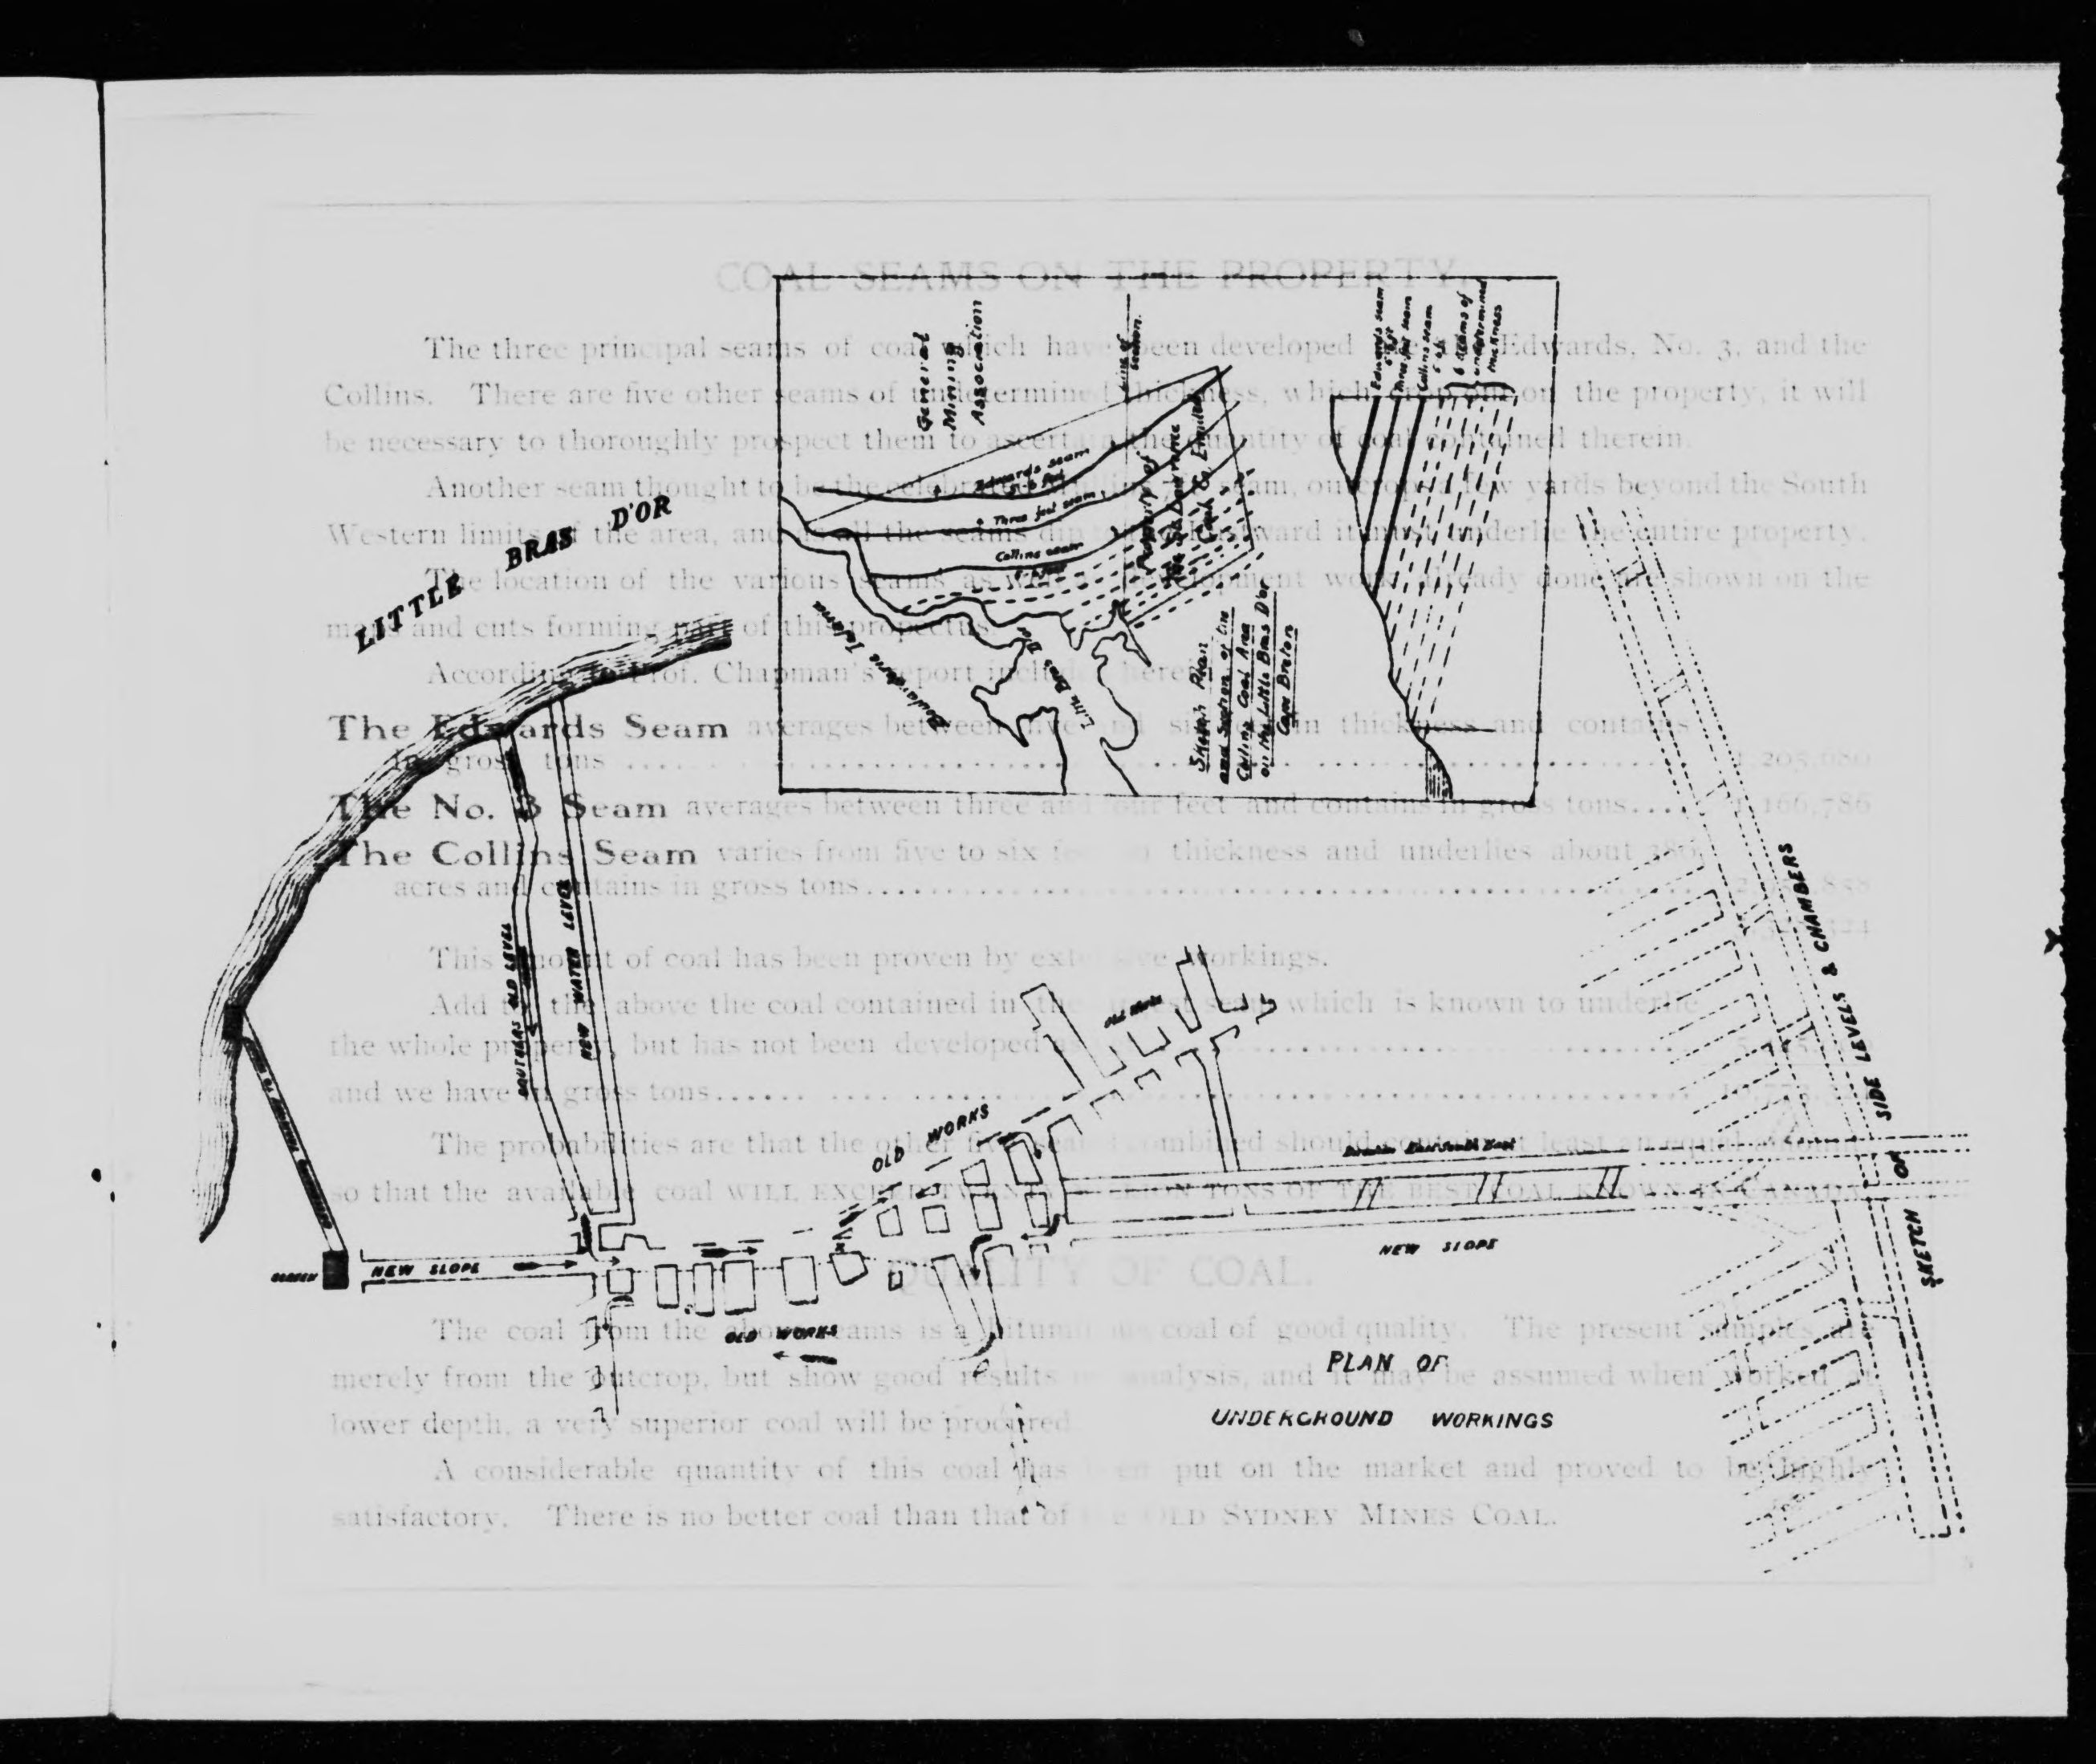 COAL SEAMS ON THE PROPERTY.
The three principal seams of coal which have been developed Edwards, No. 3, and the
Collins. There are five other seams of undetermined thickness, which on the property, it will
be necessary to thoroughly prospect them to ascertain the quantity of coal contained therein.
Another seam thought to be the celebrated seam, outcrops a few yards beyond the South
Western limits of the area, and as all the seams dip it must underlie the entire property.
The location of the various seams as well development work already done are shown on the
maps and cuts forming part of this propectus.
According to Prof. Chapman's report included herein
The Edwards Seam averages between five and six in thickness and contains
in gross tons
The No. 3 Seam averages between three and four feet and contains in gross tons.... 1,166,786
The Collins Seam varies from five to six feet in thickness and underlies about 380
acres and contains in gross tons
This amount of coal has been proven by extensive workings.
Add to the above the coal contained in the seam which is known to underlie
the whole property, but has not been developed as
and we have in gross tons
The probabilities are that the other five seams combined should contain at least an equal amount
so that the available coal WILL EXCEED TWENTY MILLION TONS OF THE BEST COAL KNOWN IN CANADA.
QUALITY OF COAL.
The coal from the above seams is a bituminous coal of good quality. The present samples are
merely from the outcrop, but show good results on analysis, and it may be assumed when worked at
lower depth, a very superior coal will be procured.
A considerable quantity of this coal has been put on the market and proved to be highly
satisfactory. There is no better coal than that of the OLD SYDNEY MINES COAL.
LITTLE BRAS D'OR
General
Mining
Association
Line of
Section.
Edwards seam
5-6 feet
Three feet seam
Collins seam
Property of
The St. Lawrence
Coal Co. Limited
Boularderie Island
Little Bras D'or
Sketch Plan
and Section of the
Collins Coal Area
on the Little Bras D'or
Cape Breton
Edwards seam
Three feet seam
Collins seam
6 seams of
undetermined
thickness
SOUTHERS OLD LEVEL
NEW WATER LEVEL
NEW SLOPE
OLD WORKS
OLD WORKS
OLD WORKS
Direction East South East
NEW SLOPE
SKETCH OF SIDE LEVELS & CHAMBERS
PLAN OF
UNDERGROUND WORKINGS